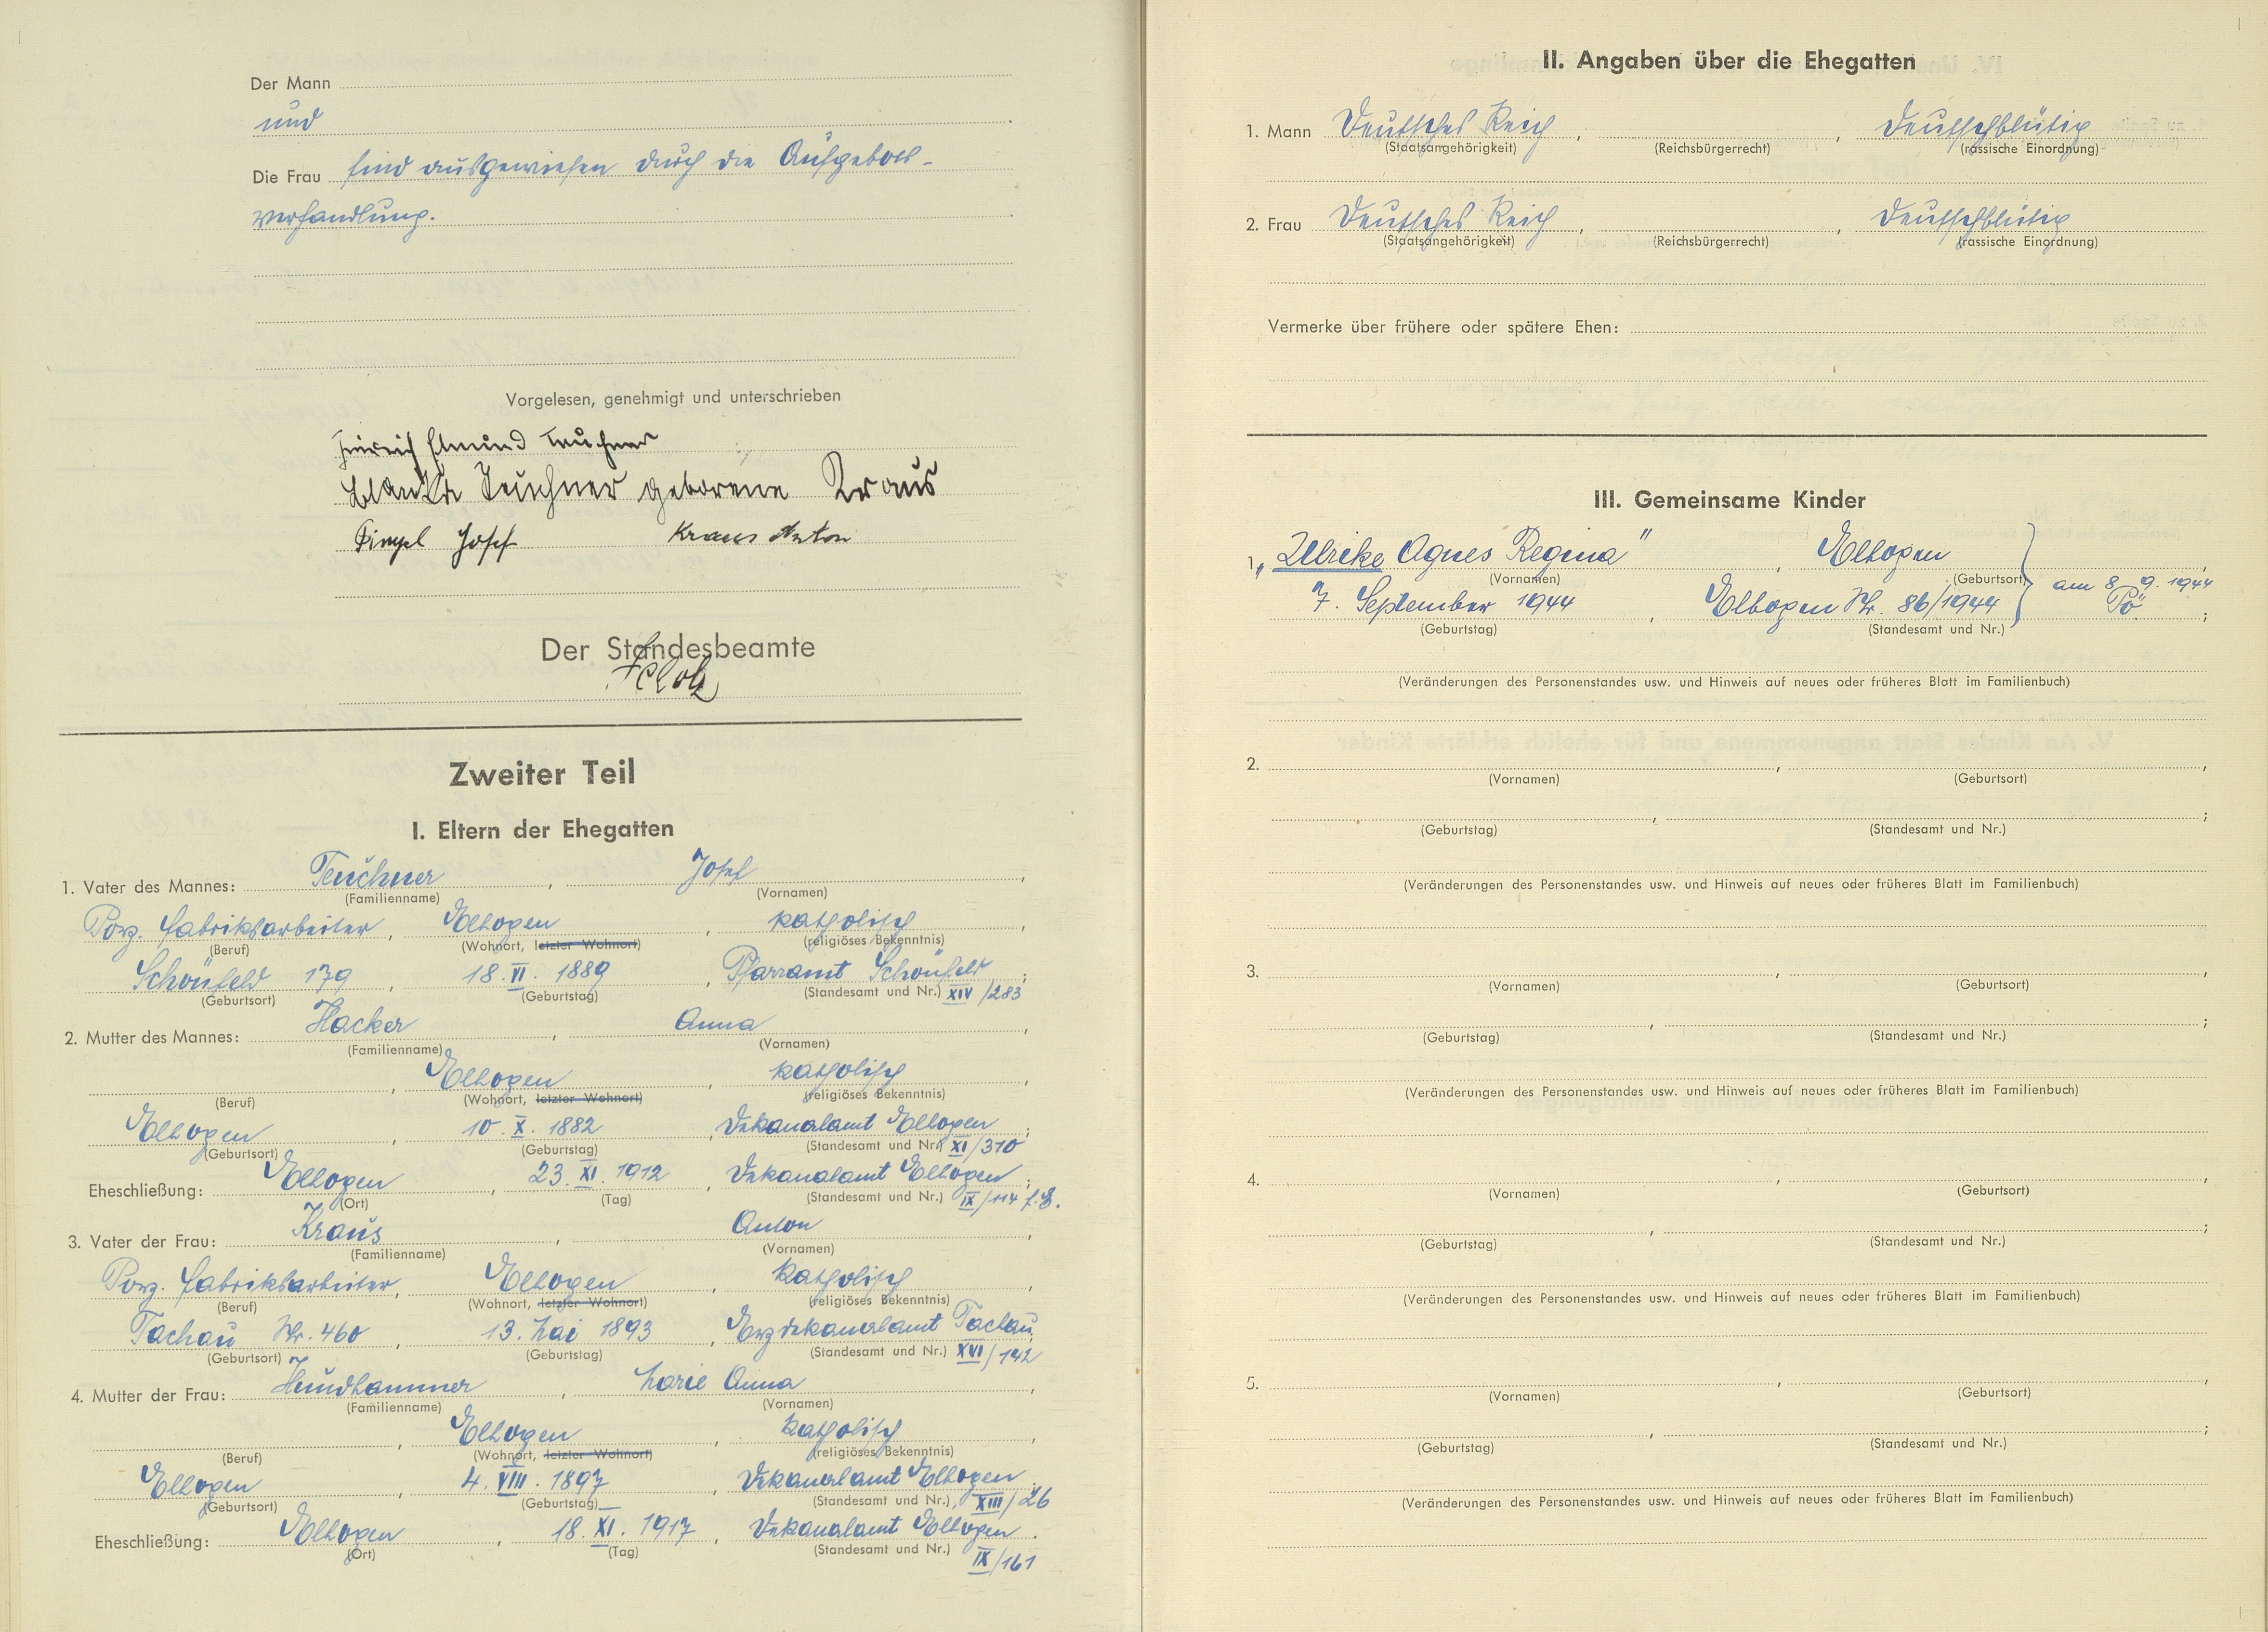 Der Mann
und
Die Frau sind ausgewiesen durch die Aufgebots-
verhandlung.
Vorgelesen, genehmigt und unterschrieben
Heinrich Edmund Teuchner
Blanka Teuchner geborene Kraus
Josef Kraus Anton
Der Standesbeamte
Zweiter Teil
I. Eltern der Ehegatten
1. Vater des Mannes: Teuchner, Josef,
(Familienname) (Vornamen)
Porz. fabriksarbeiter, Elbogen, katholisch,
(Beruf) (Wohnort, letzter Wohnort) (religiöses Bekenntnis)
Schönfeld 179, 18. VI. 1889, Pfarramt Schönfeld;
(Geburtsort) (Geburtstag) (Standesamt und Nr.) XIV/283
2. Mutter des Mannes: Hacker, Anna,
(Familienname) (Vornamen)
, Elbogen, katholisch,
(Beruf) (Wohnort, letzter Wohnort) (religiöses Bekenntnis)
Elbogen, 10. X. 1882, Dekanalamt Elbogen;
(Geburtsort) (Geburtstag) (Standesamt und Nr.) XI/310
Eheschließung: Elbogen, 23. XI. 1912, Dekanalamt Elbogen;
(Ort) (Tag) (Standesamt und Nr.) IX/114
3. Vater der Frau: Kraus, Anton,
(Familienname) (Vornamen)
Porz. fabriksarbeiter, Elbogen, katholisch,
(Beruf) (Wohnort, letzter Wohnort) (religiöses Bekenntnis)
Tachau Nr. 460, 13. Mai 1893, Erzdekanalamt Tachau;
(Geburtsort) (Geburtstag) (Standesamt und Nr.) XVI/142
4. Mutter der Frau: Hundhammer, Marie Anna,
(Familienname) (Vornamen)
, Elbogen, katholisch,
(Beruf) (Wohnort, letzter Wohnort) (religiöses Bekenntnis)
Elbogen, 4. VIII. 1897, Dekanalamt Elbogen;
(Geburtsort) (Geburtstag) (Standesamt und Nr.) XIII/26
Eheschließung: Elbogen, 18. XI. 1917, Dekanalamt Elbogen.
(Ort) (Tag) (Standesamt und Nr.) IX/161
II. Angaben über die Ehegatten
1. Mann Deutsches Reich, , deutschblütig
(Staatsangehörigkeit) (Reichsbürgerrecht) (rassische Einordnung)
2. Frau Deutsches Reich, , deutschblütig
(Staatsangehörigkeit) (Reichsbürgerrecht) (rassische Einordnung)
Vermerke über frühere oder spätere Ehen:
III. Gemeinsame Kinder
1. „Ulrike Agnes Regina", Elbogen,
(Vornamen) (Geburtsort) am 8. 9. 1944
7. September 1944, Elbogen Nr. 86/1944 Pö;
(Geburtstag) (Standesamt und Nr.)
(Veränderungen des Personenstandes usw. und Hinweis auf neues oder früheres Blatt im Familienbuch)
2. , ,
(Vornamen) (Geburtsort)
, ;
(Geburtstag) (Standesamt und Nr.)
(Veränderungen des Personenstandes usw. und Hinweis auf neues oder früheres Blatt im Familienbuch)
3. , ,
(Vornamen) (Geburtsort)
, ;
(Geburtstag) (Standesamt und Nr.)
(Veränderungen des Personenstandes usw. und Hinweis auf neues oder früheres Blatt im Familienbuch)
4. , ,
(Vornamen) (Geburtsort)
, ;
(Geburtstag) (Standesamt und Nr.)
(Veränderungen des Personenstandes usw. und Hinweis auf neues oder früheres Blatt im Familienbuch)
5. , ,
(Vornamen) (Geburtsort)
, ;
(Geburtstag) (Standesamt und Nr.)
(Veränderungen des Personenstandes usw. und Hinweis auf neues oder früheres Blatt im Familienbuch)